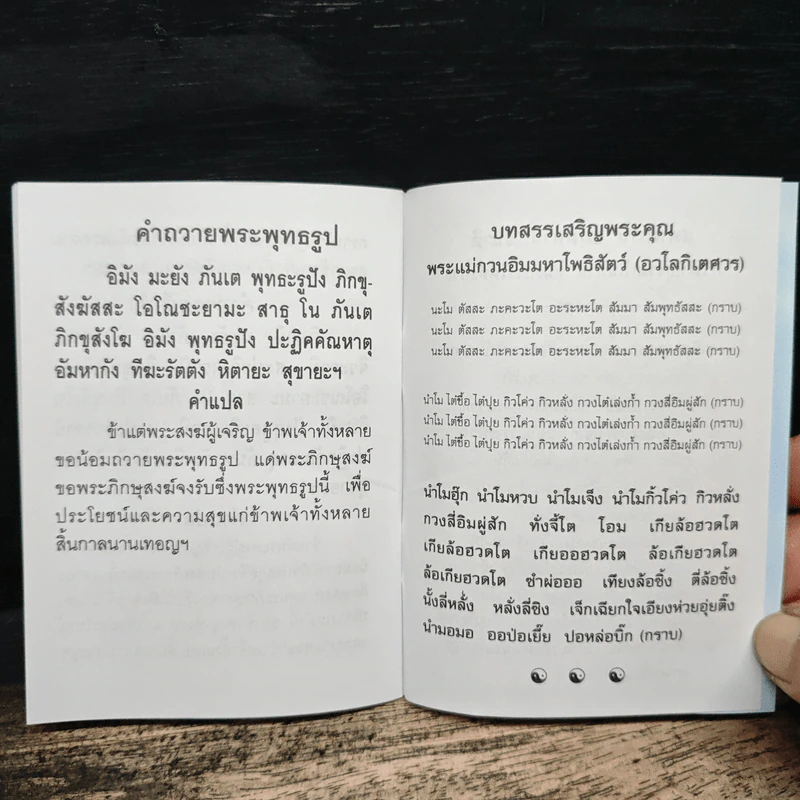 คำถวายพระพุทธรูป
อิมัง มะยัง ภันเต พุทธะรูปัง ภิกขุ-
สังฆัสสะ โอโณชะยามะ สาธุ โน ภันเต
ภิกขุสังโฆ อิมัง พุทธรูปัง ปะฏิคคัณหาตุ
อัมหากัง ทีฆะรัตตัง หิตายะ สุขายะฯ
คำแปล
ข้าแต่พระสงฆ์ผู้เจริญ ข้าพเจ้าทั้งหลาย
ขอน้อมถวายพระพุทธรูป แด่พระภิกษุสงฆ์
ขอพระภิกษุสงฆ์จงรับซึ่งพระพุทธรูปนี้ เพื่อ
ประโยชน์และความสุขแก่ข้าพเจ้าทั้งหลาย
สิ้นกาลนานเทอญฯ
บทสรรเสริญพระคุณ
พระแม่กวนอิมมหาโพธิสัตว์ (อวโลกิเตศวร)
นะโม ตัสสะ ภะคะวะโต อะระหะโต สัมมา สัมพุทธัสสะ (กราบ)
นะโม ตัสสะ ภะคะวะโต อะระหะโต สัมมา สัมพุทธัสสะ (กราบ)
นะโม ตัสสะ ภะคะวะโต อะระหะโต สัมมา สัมพุทธัสสะ (กราบ)
นำโม ไต่ชื้อ ไต่ปุย กิวโค่ว กิวหลั่ง กวงไต๋เล่งก้ำ กวงสี่อิมผู่สัก (กราบ)
นำโม ไต่ชื้อ ไต่ปุย กิวโค่ว กิวหลั่ง กวงไต๋เล่งก้ำ กวงสี่อิมผู่สัก (กราบ)
นำโม ไต่ชื้อ ไต่ปุย กิวโค่ว กิวหลั่ง กวงไต๋เล่งก้ำ กวงสี่อิมผู่สัก (กราบ)
นำโมฮุ๊ก นำโมหวบ นำโมเจ็ง นำโมกิ้วโค่ว กิวหลั่ง
กวงสี่อิมผู่สัก ทั่งจี้โต โอม เกียล้อฮวดโต
เกียล้อฮวดโต เกียออฮวดโต ล้อเกียฮวดโต
ล้อเกียฮวดโต ซำผ่อออ เทียงล้อซิ้ง ตี่ล้อซิ้ง
นั้งลี่หลั่ง หลั่งลี่ซิง เจ็กเฉียกใจเอียงห่วยอุ่ยติ๊ง
นำมอมอ ออป่อเยี๊ย ปอหล่อบิ๊ก (กราบ)